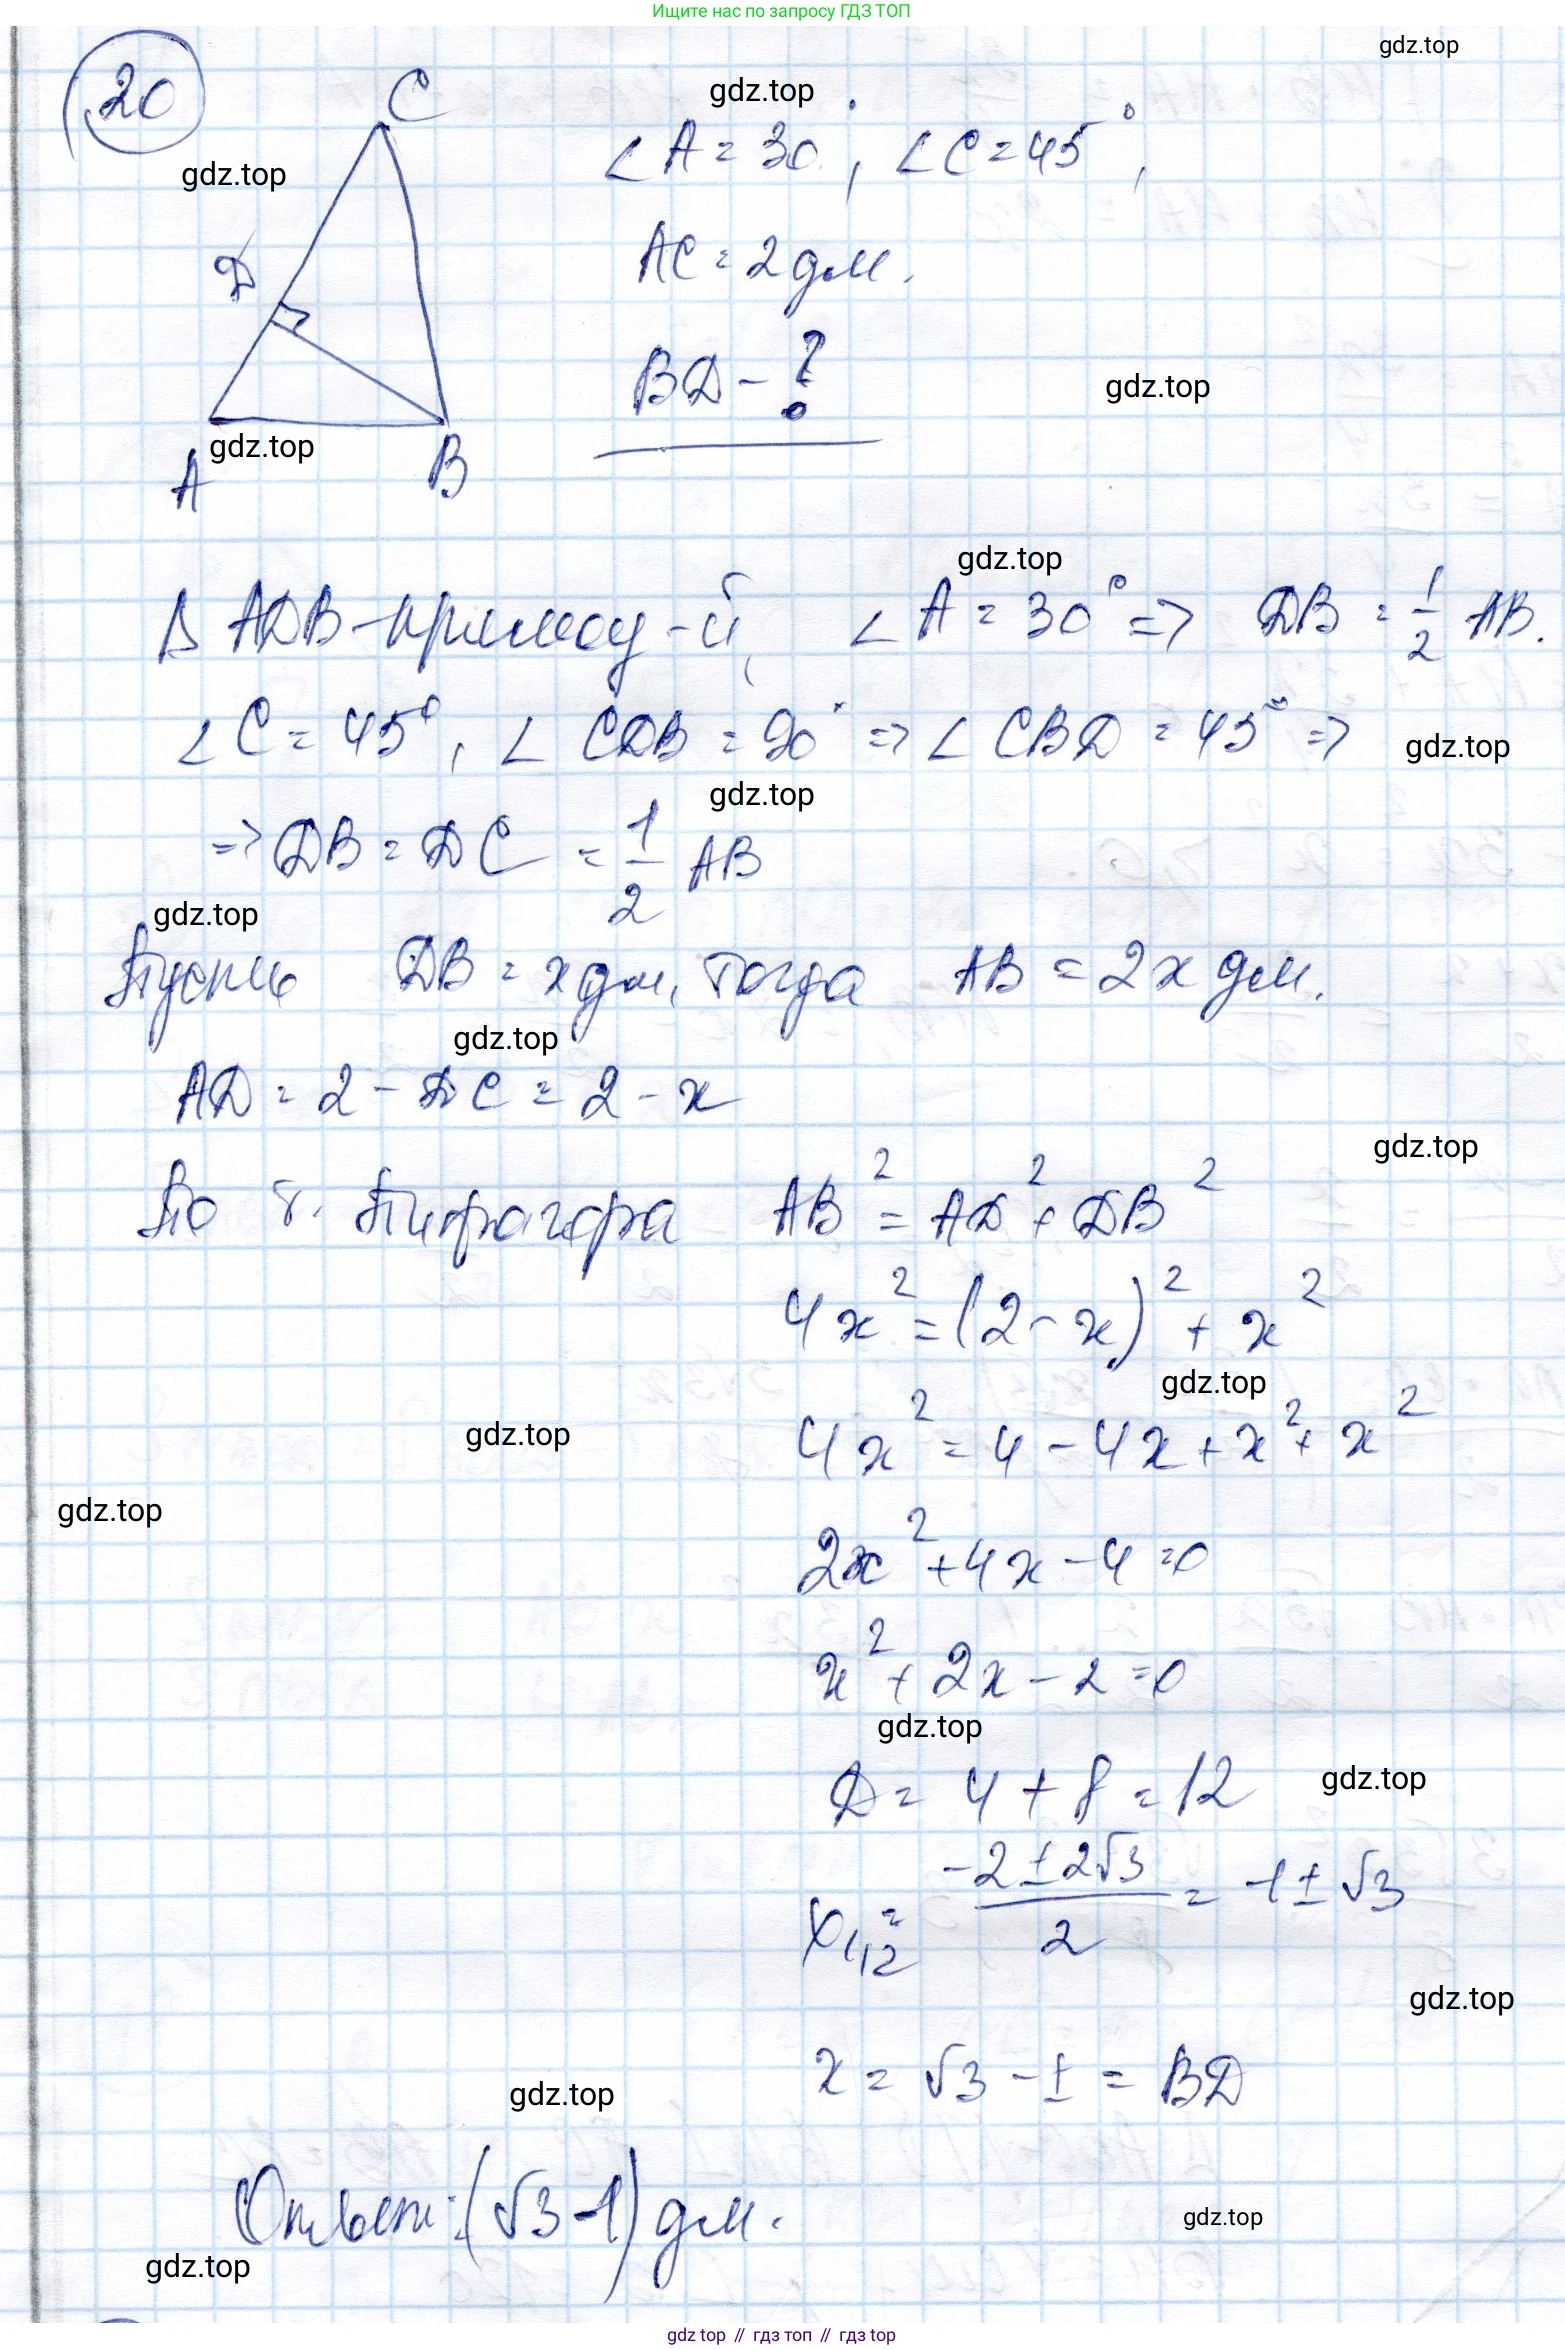 Ищите нас по запросу ГДЗ ТОП
gdz.top
20
C
gdz.top
∠A = 30°, ∠C = 45°,
gdz.top
AC = 2 дм.
D
BD - ?
gdz.top
A
gdz.top
B
gdz.top
Δ ADB - прямоу-й, ∠A = 30° => DB = 1/2 AB.
∠C = 45°, ∠CDB = 90° => ∠CBD = 45° =>
gdz.top
gdz.top
=> DB = DC = 1/2 AB
gdz.top
Пусть DB = x дм, тогда AB = 2x дм.
gdz.top
AD = 2 - DC = 2 - x
gdz.top
По т. Пифагора AB² = AD² + DB²
4x² = (2 - x)² + x²
gdz.top
gdz.top
4x² = 4 - 4x + x² + x²
gdz.top
2x² + 4x - 4 = 0
x² + 2x - 2 = 0
gdz.top
D = 4 + 8 = 12
gdz.top
x₁,₂ = (-2 ± 2√3)/2 = -1 ± √3
gdz.top
x = √3 - 1 = BD
gdz.top
Ответ: (√3 - 1) дм.
gdz.top
gdz.top
gdz top // гдз топ // гдз top